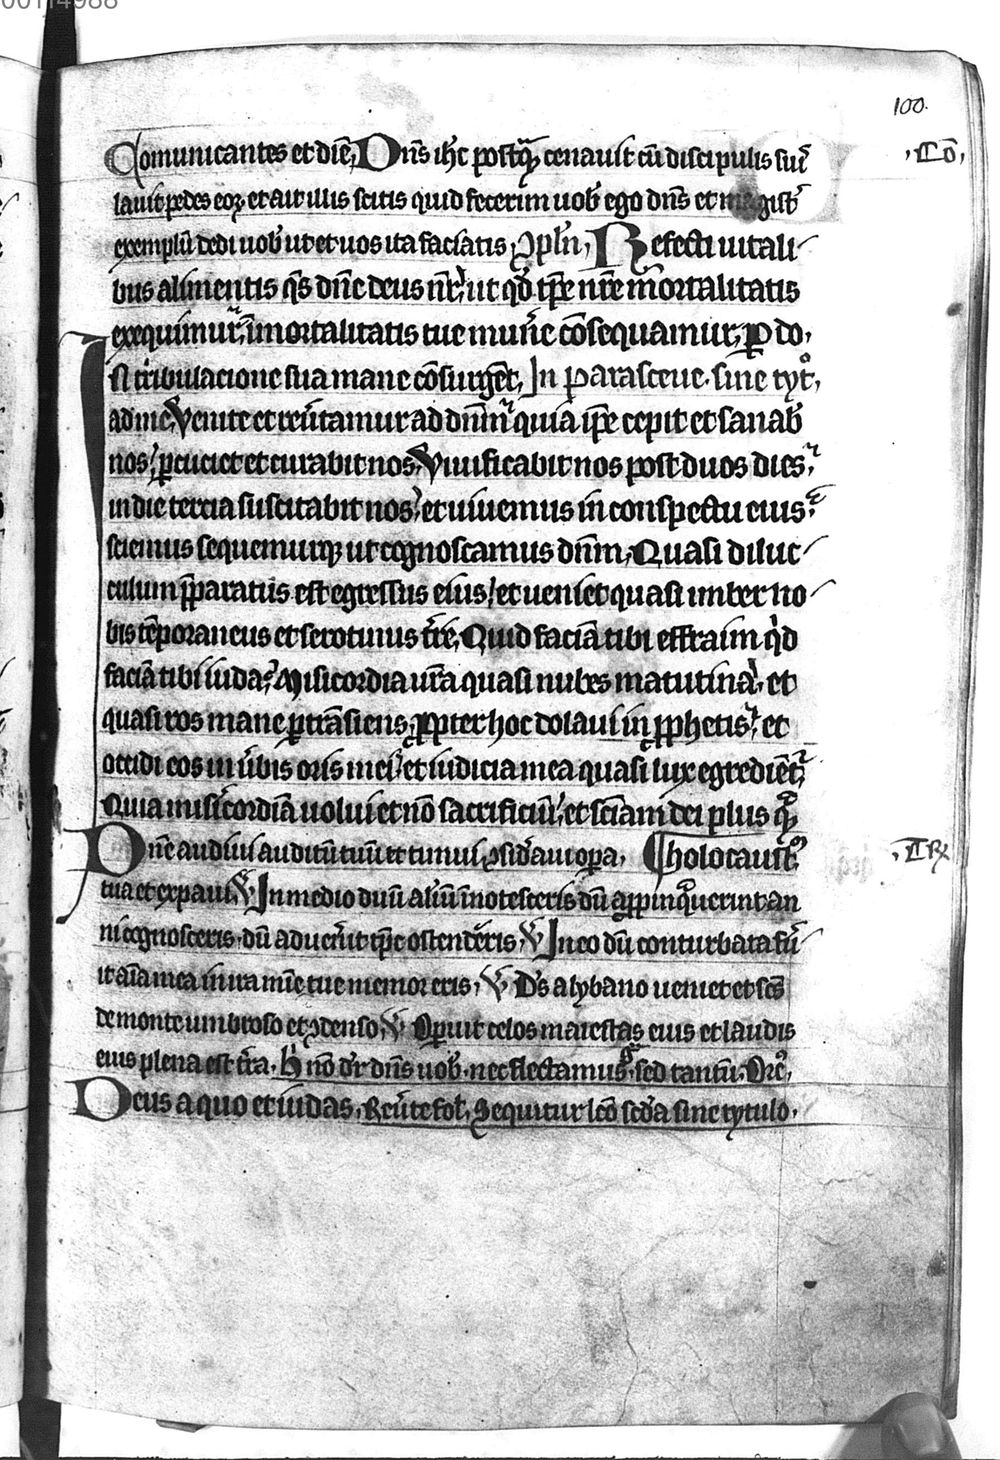 00114988
100.
Comunicantes et diē, Dn̄s ih̄c postq̄ȝ cenauit cū discipulis suis ·Co̅·
lauit pedes eoꝝ et ait illis scitis quid fecerim uob̄ ego dn̄s et magist̄
exemplū dedi uob̄ ut et uos ita faciatis, ꝯpl̄n, Refecti uitali
bus alimentis q̄s dn̄e deus nr̄, ut qd̄ tp̄e nr̄e mortalitatis
exequimur, īmortalitatis tue mun̄e cōsequamur, ꝑ do·
In tribulacione sua mane cōsurgēt, In parasceue· sine tyt̊,
ad me, Venite et reūtamur ad dn̄m quia ip̄e cepit et sanab̄
nos, ꝑcuciet et curabit nos, Viuificabit nos post duos dies,
in die tercia suscitabit nos, et uiuemus in conspectu eius,
sciemus sequemurqȝ ut cognoscamus dn̄m, Quasi diluc
culum p̄paratus est egressus eius, et ueniet quasi imber no
bis tēporaneus et serotinus tr̄e, Quid faciā tibi effraim qd̄
faciā tibi iuda, Misicordia ur̄a quasi nubes matutina, et
quasi ros mane ꝑtrāsiens, ꝓpter hoc dolaui in ꝓphetis, et
occidi eos in ūbis oris mei, et iudicia mea quasi lux egrediēt̄,
Quia misicordiā uolui et nō sacrificiū, et sciam dei plus q̄ꝫ
Dn̄e audiui auditū tuū et timui ꝯsid̄aui oꝑa, ¶ holocaust̄ ·Tꝶ
tua et expaui, ℣ In medio duū aīalū īnotesceris dū appinquauerint an
ni cognosceris, dū aduen̄it tp̄s ostend̄eris, ℣ In eo dū conturbata fu
it aīa mea in ira mīe tue memor eris, ℣ Ds̄ a lybano ueniet et sc̄s
de monte umbroso et ꝯdenso, ℣ Operuit celos maiestas eius et laudis
eius plena est tr̄a, h̄ nō dr̄ dn̄s uob̄, nec flectamus, sed tantū· Or̄e,
Deus a quo et iudas, Req̄re fol̄, Sequitur lc̄o sc̄da sine tytulo,